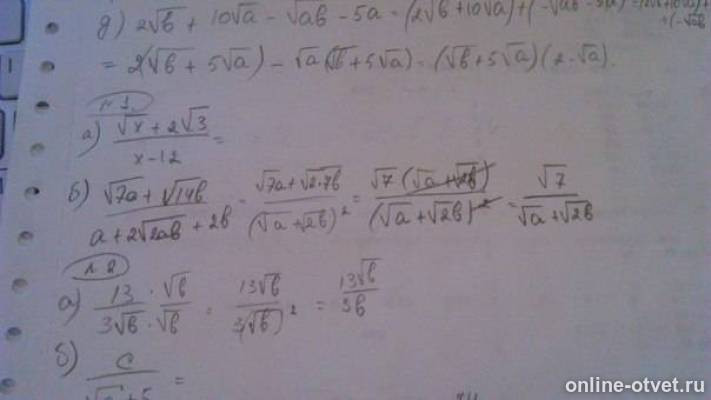 д) 2√b + 10√a - √ab - 5a = (2√b + 10√a) + (-√ab - 5a) =
= 2(√b + 5√a) - √a(√b + 5√a) = (√b + 5√a)(2 - √a).
№1.
а) (√x + 2√3)/(x - 12) =
б) (√7a + √14b)/(a + 2√2ab + 2b) = (√7a + √2·7b)/(√a + √2b)² = √7(√a + √2b)/(√a + √2b)² = √7/(√a + √2b)
№2
а) (13 · √b)/(3√b · √b) = 13√b/3(√b)² = 13√b/3b
б) c/ +5 =
online-otvet.ru